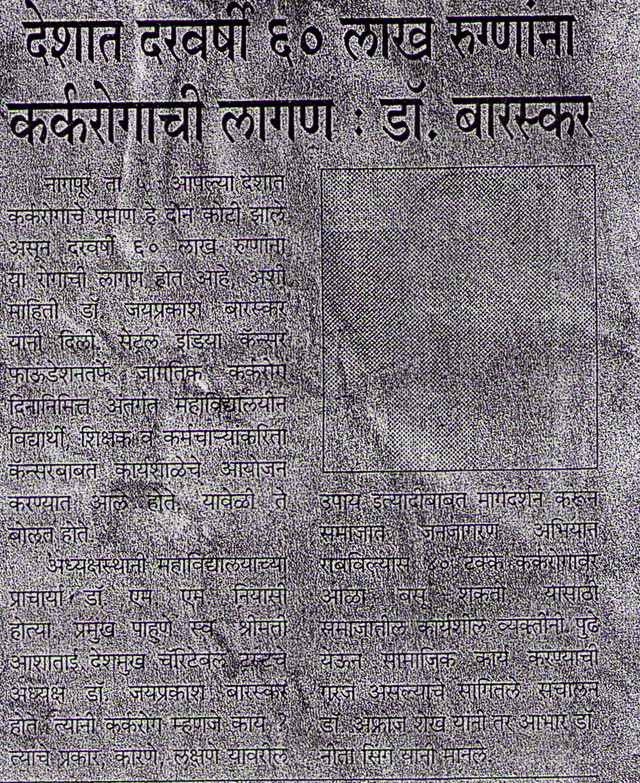 देशात दरवर्षी ६० लाख रुग्णांना
कर्करोगाची लागण : डॉ. बारस्कर
नागपूर, ता ५ : आपल्या देशात
कर्करोगाचे प्रमाण हे दोन कोटी झाले
असून दरवर्षी ६० लाख रुग्णांना
या रोगाची लागण होत आहे, अशी
माहिती डॉ. जयप्रकाश बारस्कर
यांनी दिली. सेंट्रल इंडिया कॅन्सर
फाऊंडेशनतर्फे जागतिक कर्करोग
दिनानिमित्त अंतर्गत महाविद्यालयीन
विद्यार्थी, शिक्षक व कर्मचाऱ्यांकरिता
कॅन्सरबाबत कार्यशाळेचे आयोजन
करण्यात आले होते. यावेळी ते
बोलत होते.
अध्यक्षस्थानी महाविद्यालयाच्या
प्राचार्या डॉ. एम. एम.
होत्या. प्रमुख पाहुणे स्व. श्रीमती
आशाताई देशमुख चॅरिटेबल ट्रस्टचे
अध्यक्ष डॉ. जयप्रकाश बारस्कर
होते. त्यांनी कर्करोग म्हणजे काय ?
त्याचे प्रकार, कारणे, लक्षण यावरील
उपाय इत्यादीबाबत मार्गदर्शन करून
समाजात जनजागरण अभियान
राबविल्यास ४० टक्के कर्करोगावर
आळा बसू शकतो. यासाठी
समाजातील कार्यशील व्यक्तींनी पुढे
येऊन सामाजिक कार्य करण्याची
गरज असल्याचे सांगितले. संचालन
डॉ. अफ्रोज शेख यांनी तर आभार डॉ.
नीता सिंग यांनी मानले.